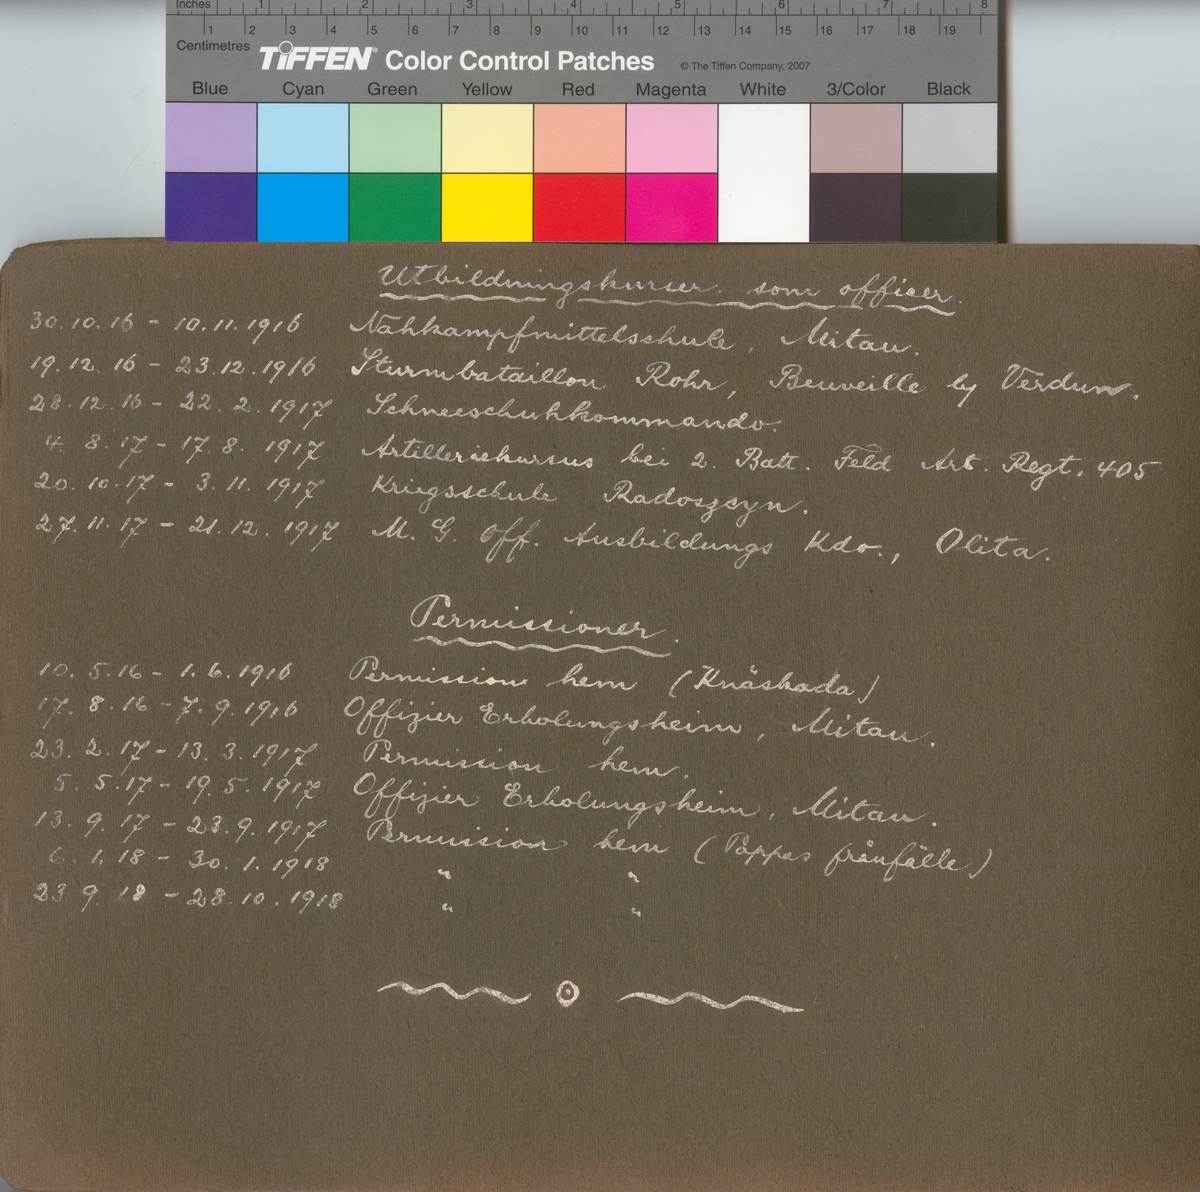 Inches 1 2 3 4 5 6 7 8
1 2 3 4 5 6 7 8 9 10 11 12 13 14 15 16 17 18 19
Centimetres
TIFFEN® Color Control Patches © The Tiffen Company, 2007
Blue Cyan Green Yellow Red Magenta White 3/Color Black
Utbildningskurser som officer.
30.10.16 - 10.11.1916 Nahkampfmittelschule, Mitau.
19.12.16 - 23.12.1916 Sturmbataillon Rohr, Beuveille by Verdun.
28.12.16 - 22.2.1917 Schneeschuhkommando.
4.8.17 - 17.8.1917 Artilleriekursus bei 2. Batt. Feld Art. Regt. 405
20.10.17 - 3.11.1917 Kriegsschule Radoszcyn.
27.11.17 - 21.12.1917 M. G. Off. Ausbildungs Kdo., Olita.
Permissioner.
10.5.16 - 1.6.1916 Permission hem (Knäskada)
17.8.16 - 7.9.1916 Offizier Erholungsheim, Mitau.
23.2.17 - 13.3.1917 Permission hem.
5.5.17 - 19.5.1917 Offizier Erholungsheim, Mitau.
13.9.17 - 23.9.1917 Permission hem (Pappas frånfälle)
6.1.18 - 30.1.1918 " "
23.9.18 - 28.10.1918 " "